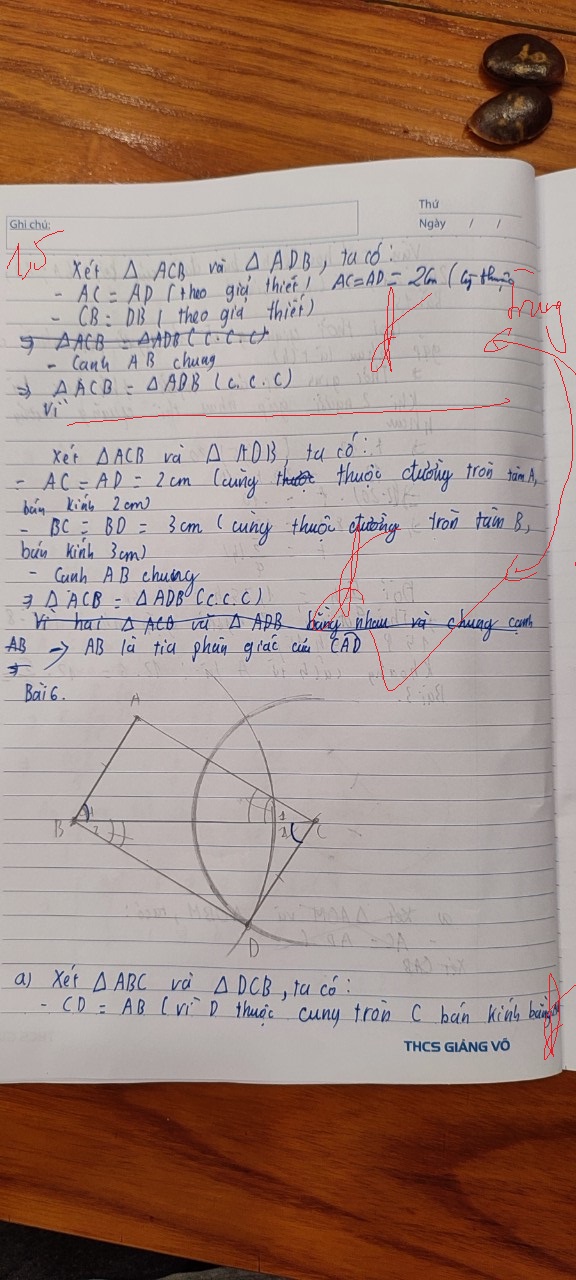 Ghi chú:
Thứ
Ngày / /
1,5
Xét Δ ACB và Δ ADB, ta có:
- AC = AD (theo giả thiết) AC = AD = 2cm (cùng thuộc
- CB = DB (theo giả thiết)
Trung
⇒ ΔACB = ΔADB (c.c.c)
- Cạnh AB chung
⇒ ΔACB = ΔADB (c.c.c)
Vì
Xét ΔACB và Δ ADB, ta có:
- AC = AD = 2cm (cùng thuộc thuộc đường tròn tâm A,
bán kính 2cm)
- BC = BD = 3cm (cùng thuộc đường tròn tâm B,
bán kính 3cm)
- Cạnh AB chung
⇒ ΔACB = ΔADB (c.c.c)
Vì hai Δ ACB và Δ ADB bằng nhau và chung cạnh
AB → AB là tia phân giác của CAD
⇒
Bài 6.
A
B 1 2
1 2 C
D
a) Xét ΔABC và ΔDCB, ta có:
- CD = AB (vì D thuộc cung tròn C bán kính bằng
THCS GIẢNG VÕ